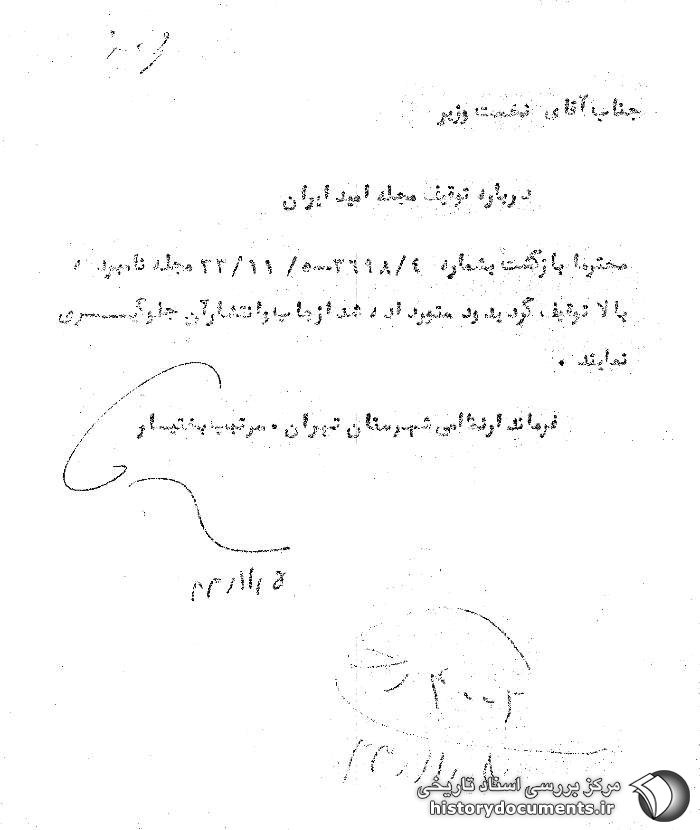 جناب آقای نخست وزیر
درباره توقیف مجله امید ایران
محترما بازگشت بشماره ۳۶۹۸/۴-۵/۱۱/۳۳ مجله نامبرده
بالا توقیف گردید و دستور داده شد از چاپ و انتشار آن جلوگیری
نمایند .
فرماندار نظامی شهرستان تهران . سرتیپ بختیار
۳۳/۱۱/۵
مرکز بررسی اسناد تاریخی
historydocuments.ir